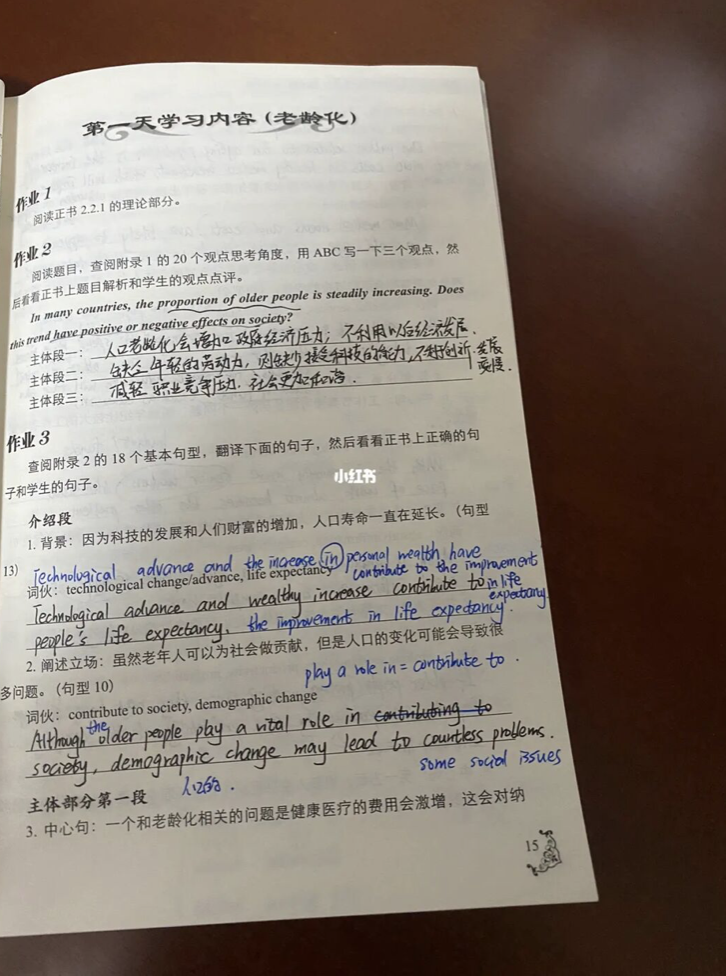 第一天学习内容（老龄化）
作业 1
阅读正书 2.2.1 的理论部分。
作业 2
阅读题目，查阅附录 1 的 20 个观点思考角度，用 ABC 写一下三个观点，然
后看看正书上题目解析和学生的观点点评。
In many countries, the proportion of older people is steadily increasing. Does
this trend have positive or negative effects on society?
主体段一：人口老龄化会增加政府经济压力；不利用以后经济发展.
主体段二：缺乏年轻的劳动力，则缺少接受科技的能力，不利创新发展
主体段三：减轻职业竞争压力，社会更加和谐.
缓慢.
作业 3
查阅附录 2 的 18 个基本句型，翻译下面的句子，然后看看正书上正确的句
子和学生的句子。
小红书
介绍段
1. 背景：因为科技的发展和人们财富的增加，人口寿命一直在延长。（句型
13）
Technological advance and the increase in personal wealth have
contribute to the improvement
in life
expectancy
词伙：technological change/advance, life expectancy
Technological advance and wealthy increase contribute to
people's life expectancy. the improvement in life expectancy.
2. 阐述立场：虽然老年人可以为社会做贡献，但是人口的变化可能会导致很
多问题。（句型 10）
play a role in = contribute to.
词伙：contribute to society, demographic change
Although the older people play a vital role in contributing to
society, demographic change may lead to countless problems.
some social issues
人口的.
主体部分第一段
3. 中心句：一个和老龄化相关的问题是健康医疗的费用会激增，这会对纳
15